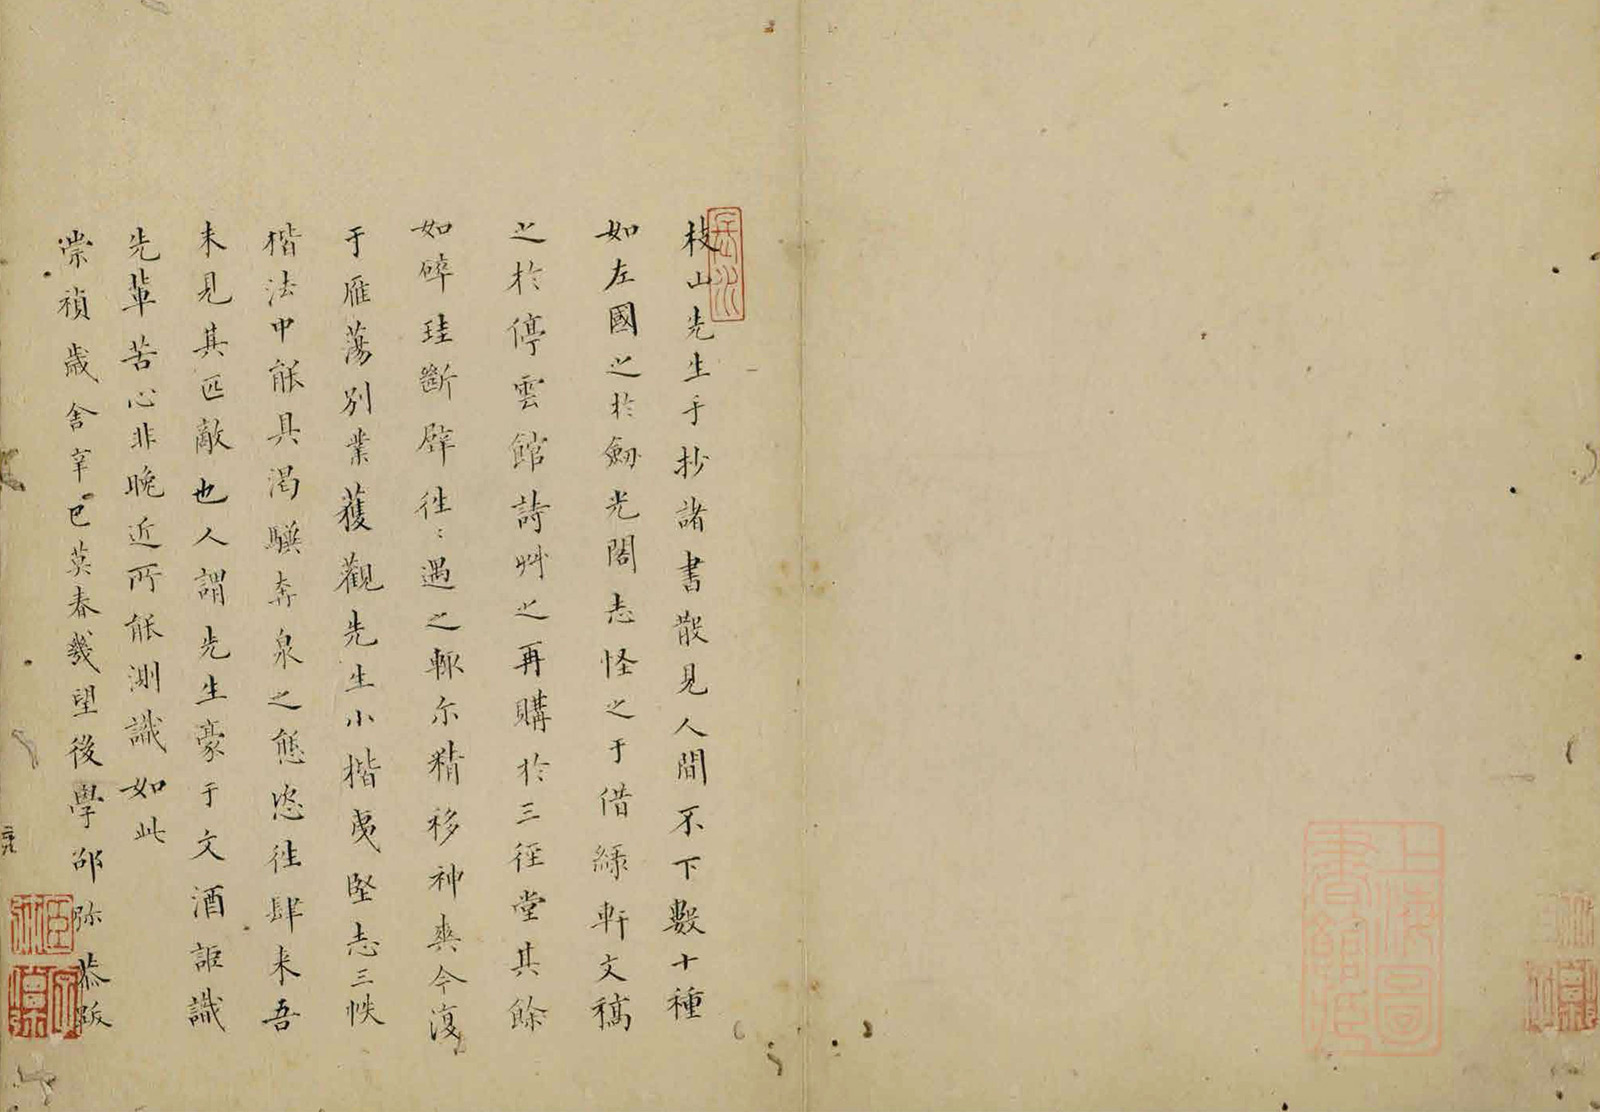 枝山先生手抄諸書散見人間不下數十種
如左國之於劒光閣志怪之于借綠軒文稿
之於停雲館詩艸之再購於三徑堂其餘
如碎珪斷璧徃〻遇之輒尔精移神爽今復
于雁蕩別業獲觀先生小楷夷堅志三帙
楷法中能具渴驥奔泉之態恣徃肆来吾
未見其匹敵也人謂先生豪于文酒詎識
先輩苦心非晚近所能測識如此
崇禎歲舍辛巳莫春幾望後學邵弥恭跋
上海圖
書館藏